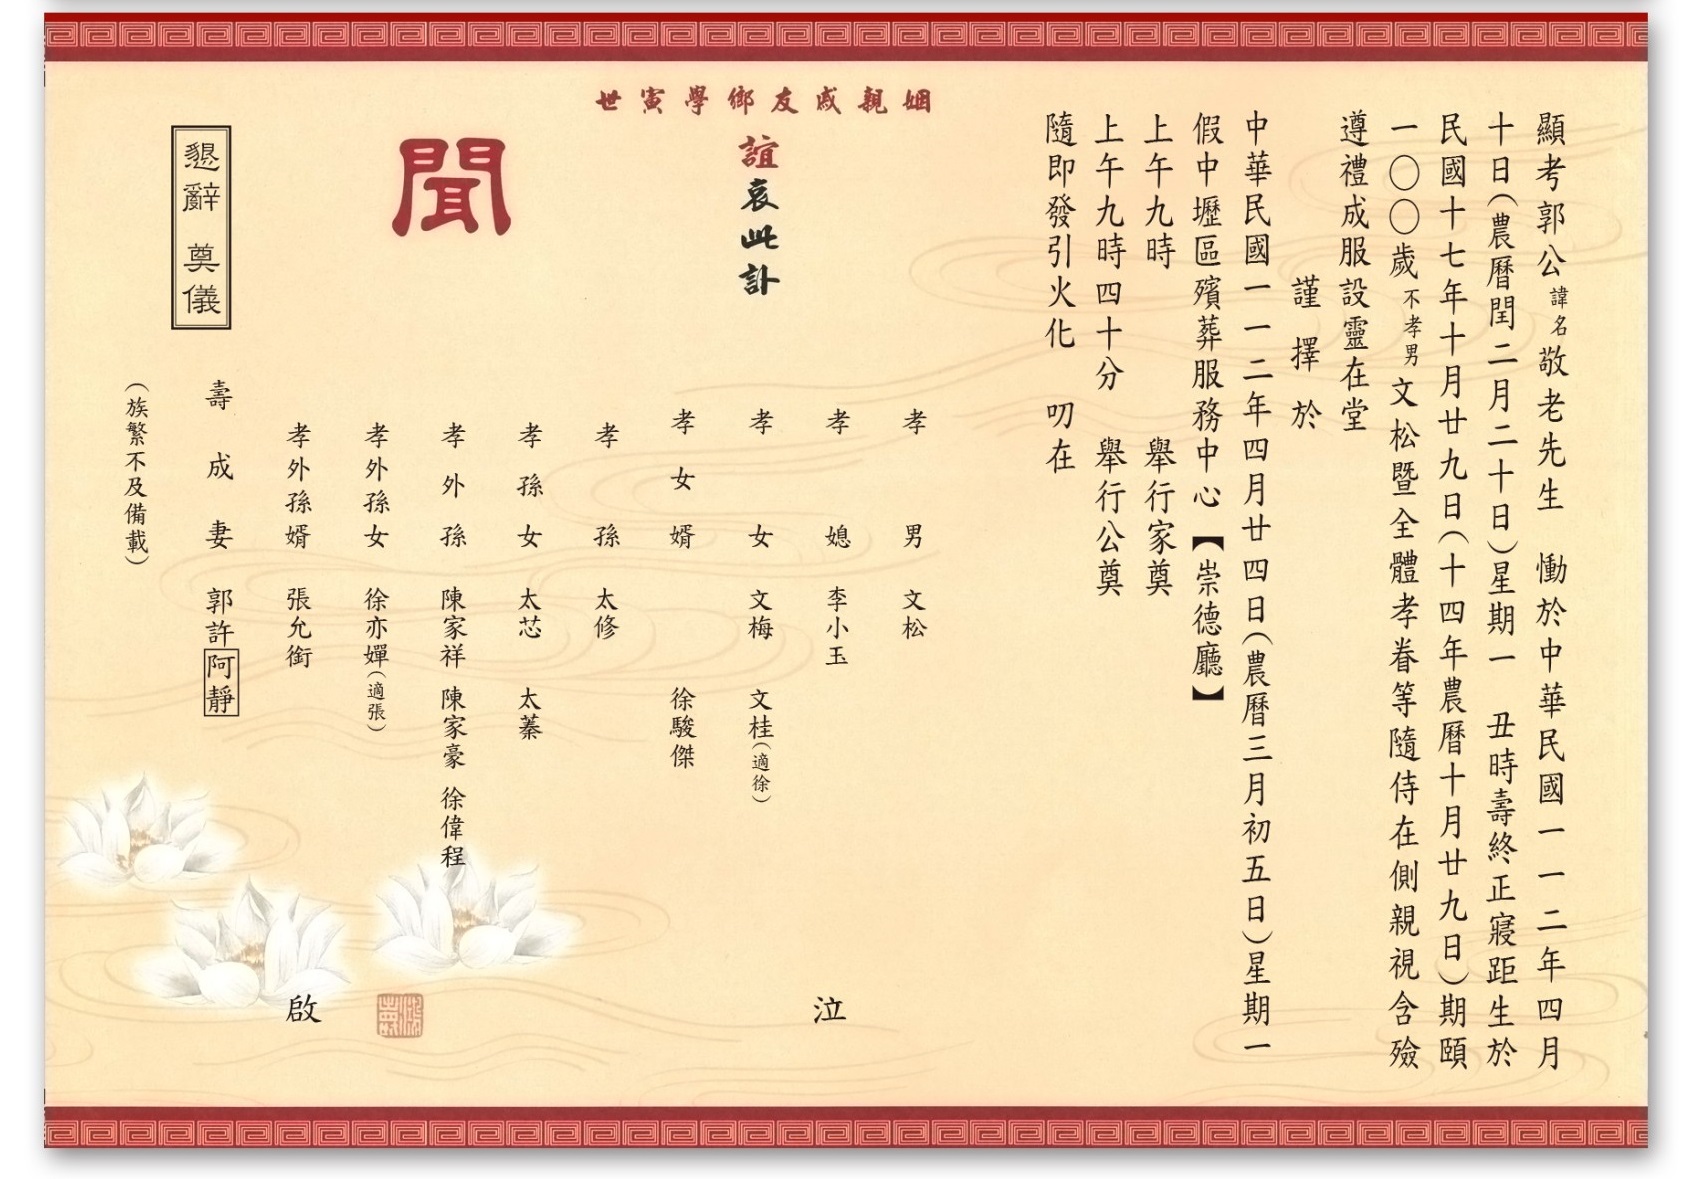 顯考郭公諱名敬老先生　慟於中華民國一一二年四月
十日(農曆閏二月二十日)星期一　丑時壽終正寢距生於
民國十七年十月廿九日(十四年農曆十月廿九日)期頤
一〇〇歲不孝男文松暨全體孝眷等隨侍在側親視含殮
遵禮成服設靈在堂
謹擇於
中華民國一一二年四月廿四日(農曆三月初五日)星期一
假中壢區殯葬服務中心【崇德廳】
上午九時　舉行家奠
上午九時四十分　舉行公奠
隨即發引火化　叨在
姻親戚友鄉學寅世
誼哀此訃
聞
孝男　文松
孝媳　李小玉
孝女　文梅　文桂(適徐)
孝女婿　徐駿傑
孝孫　太修
孝孫女　太芯　太蓁
孝外孫　陳家祥　陳家豪　徐偉程
孝外孫女　徐亦嬋(適張)
孝外孫婿　張允銜
壽成妻　郭許阿靜
(族繁不及備載)
泣
啟
懇辭　奠儀